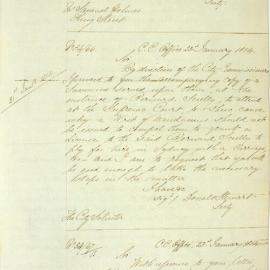 Secty
Mr Samuel Holmes
King Street
C. C. Office 23rd January 1854
Sir
By direction of the City Commissioners
I forward to you the accompanying copy of a
Summons served upon them at the
instance of Bernard Skelly, to attend
at the Supreme Court to shew cause
why a Writ of Mandamus should not
be issued to compel them to grant a
License to the said Bernard Skelly to
ply for hire in Sydney with a Carriage
and I am to request that you will
be good enough to take the necessary
steps in the matter
I have &c
Secty
The City Solicitor
C. C. Office, 23rd January
Sir
With reference to your letter